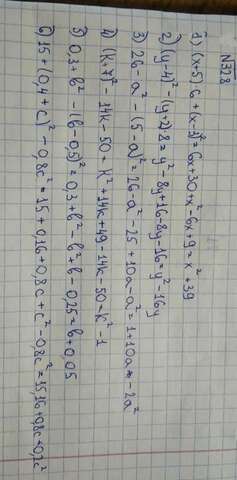 N328
1) (x+5)·6+(x-3)²=6x+30+x²-6x+9=x²+39
2) (y-4)²-(y+2)8=y²-8y+16-8y-16=y²-16y
3) 26-a²-(5-a)²=26-a²-25+10a-a²=1+10a-2a²
4) (k+7)²-14k-50=k²+14k+49-14k-50=k²-1
5) 0,3+b²-(b-0,5)²=0,3+b²-b²+b-0,25=b+0,05
6) 15+(0,4+c)²-0,8c²=15+0,16+0,8c+c²-0,8c²=15,16+0,8c+0,2c²